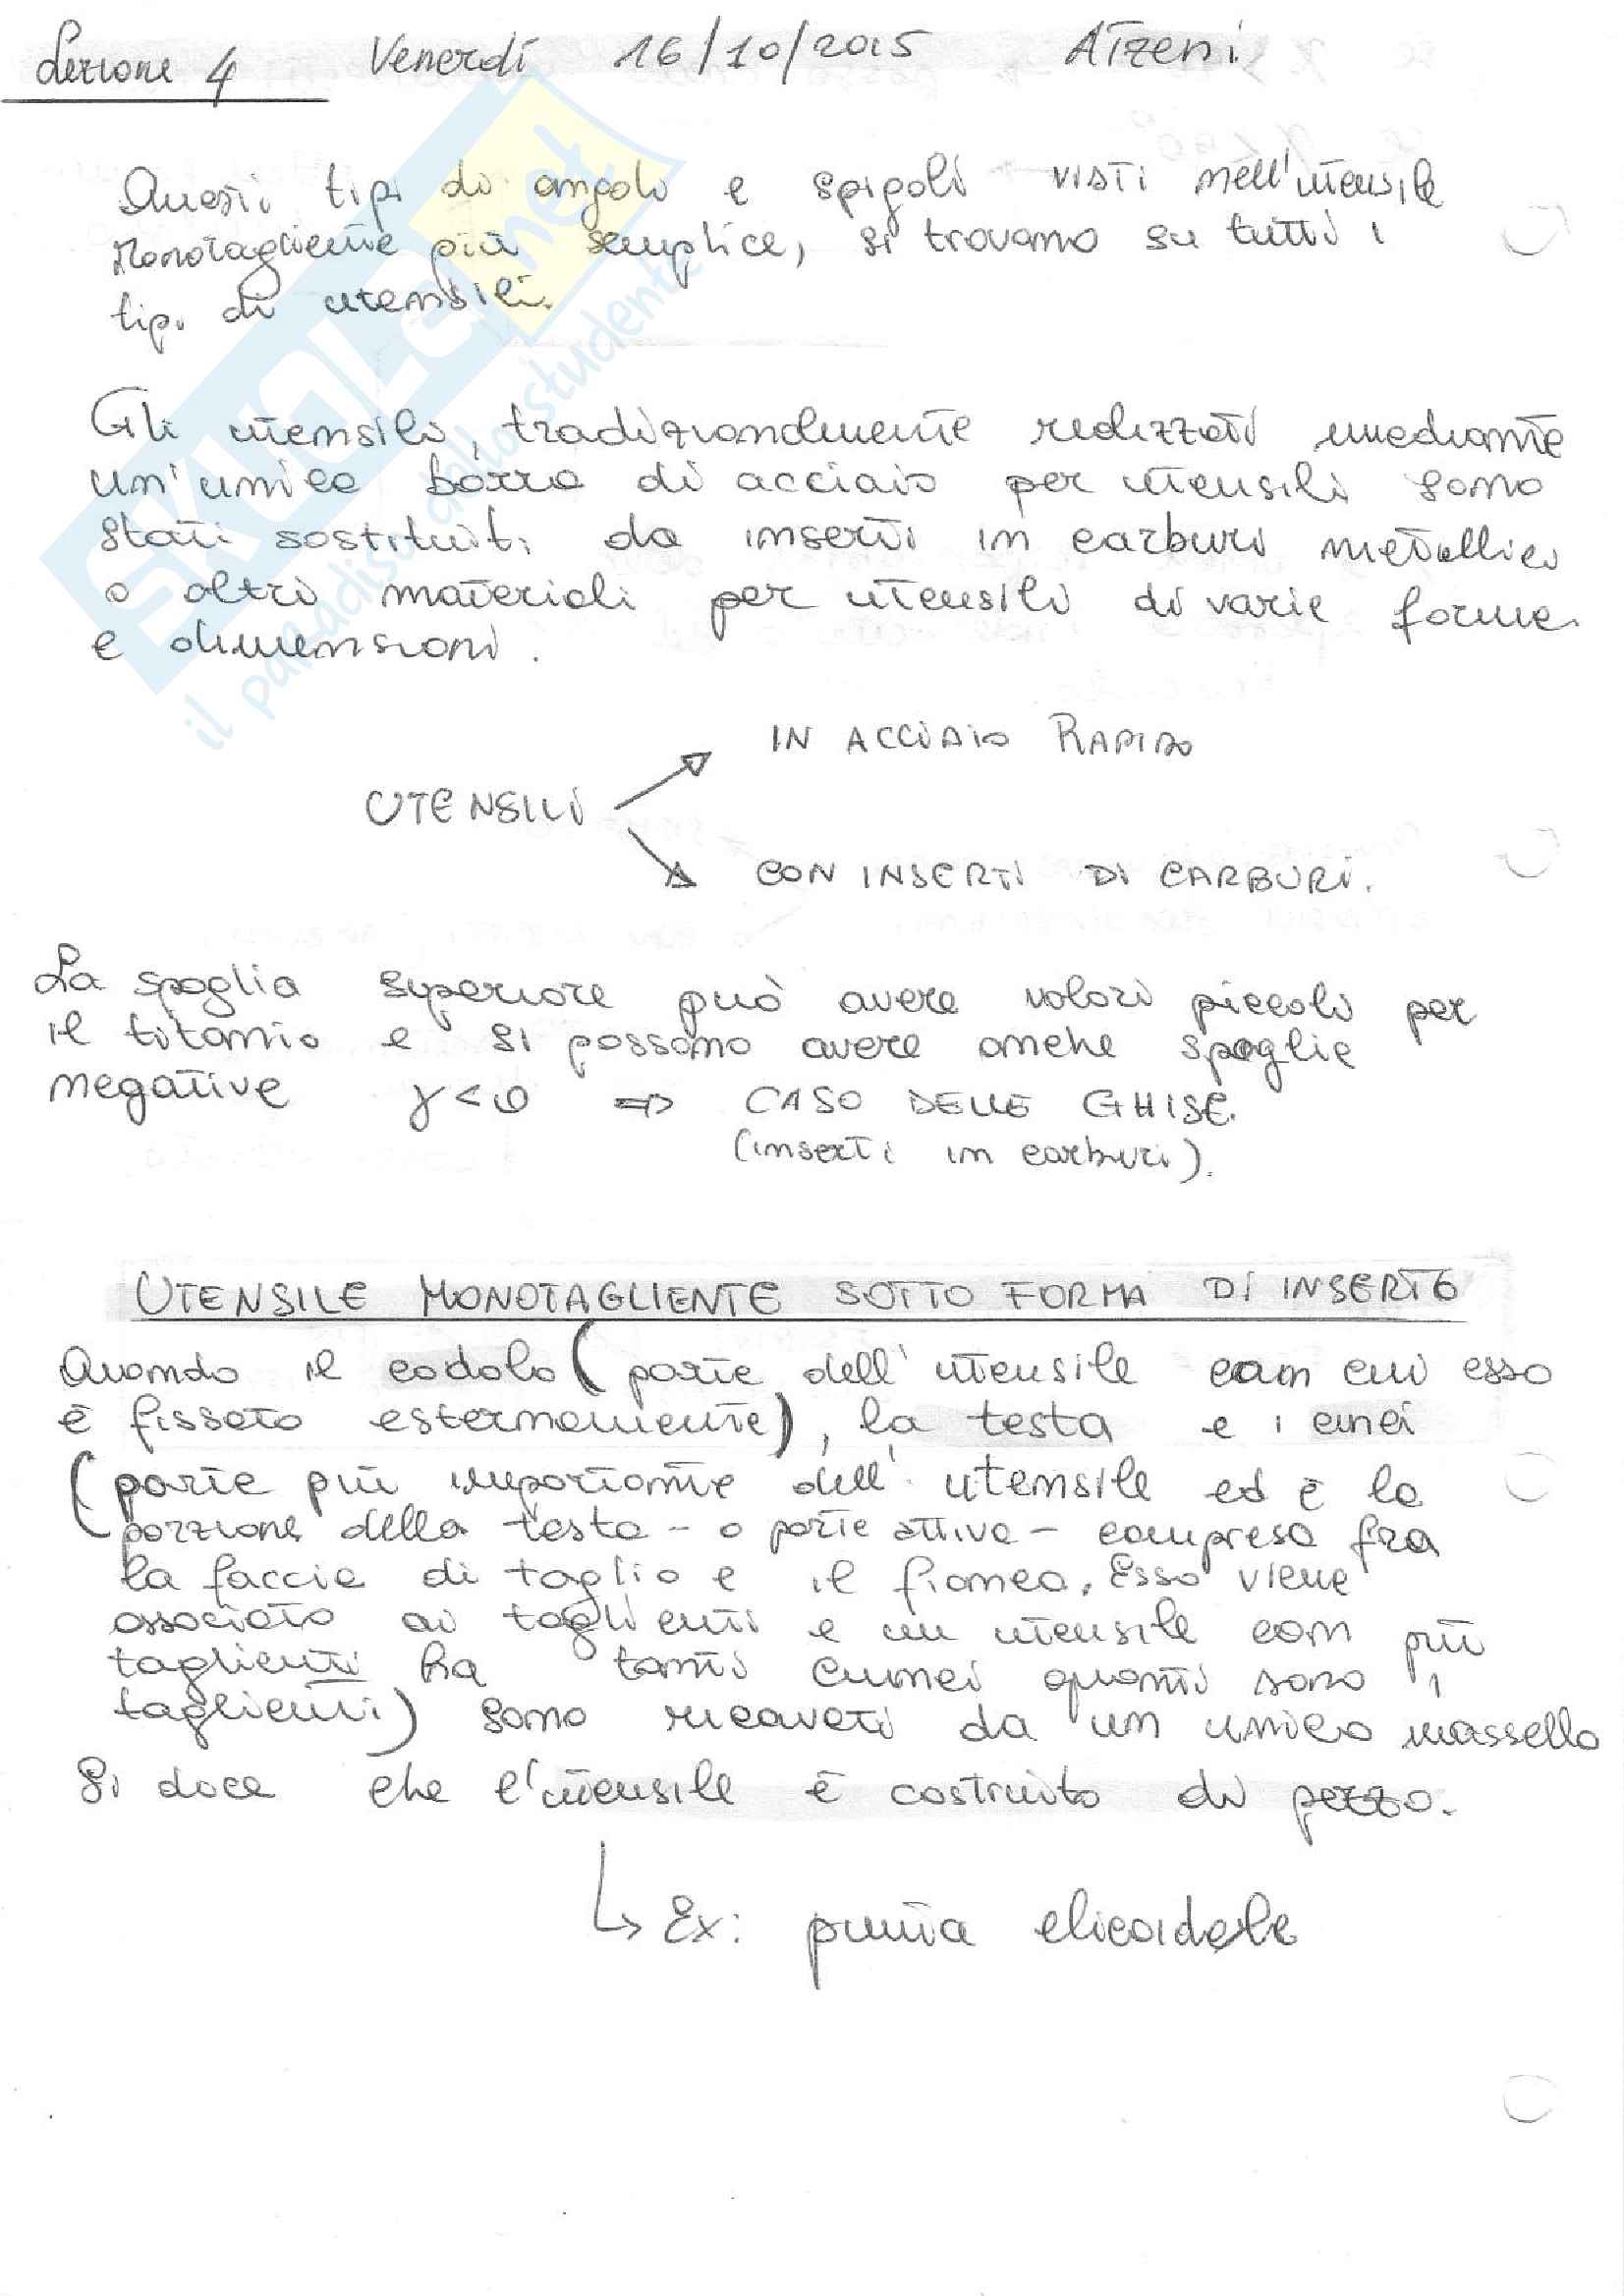 Lezione 4 Venerdì 16/10/2015 Atzeni
Questi tipi di angoli e spigoli visti nell'utensile
monotagliente più semplice, si trovano su tutti i
tipi di utensili.
Gli utensili, tradizionalmente realizzati mediante
un'unica barra di acciaio per utensili sono
stati sostituiti da inserti in carburi metallici
o altri materiali per utensili di varie forme
e dimensioni.
IN ACCIAIO RAPIDO
UTENSILI
CON INSERTI DI CARBURI.
La spoglia superiore può avere valori piccoli per
il titanio e si possono avere anche spoglie
negative γ<0 ⇒ CASO DELLE GHISE.
(inserti in carburi).
UTENSILE MONOTAGLIENTE SOTTO FORMA DI INSERTO
Quando il codolo (parte dell'utensile con cui esso
è fissato esternamente), la testa e i cunei
(parte più importante dell'utensile ed è la
porzione della testa - o parte attiva - compresa fra
la faccia di taglio e il fianco. Esso viene
associato ai taglienti e un utensile con più
taglienti ha tanti cunei quanti sono i
taglienti) sono ricavati da un unico massello
si dice che l'utensile è costruito di pezzo.
↳ Ex: punta elicoidale
SKUOLA.net
il paradiso dello studente